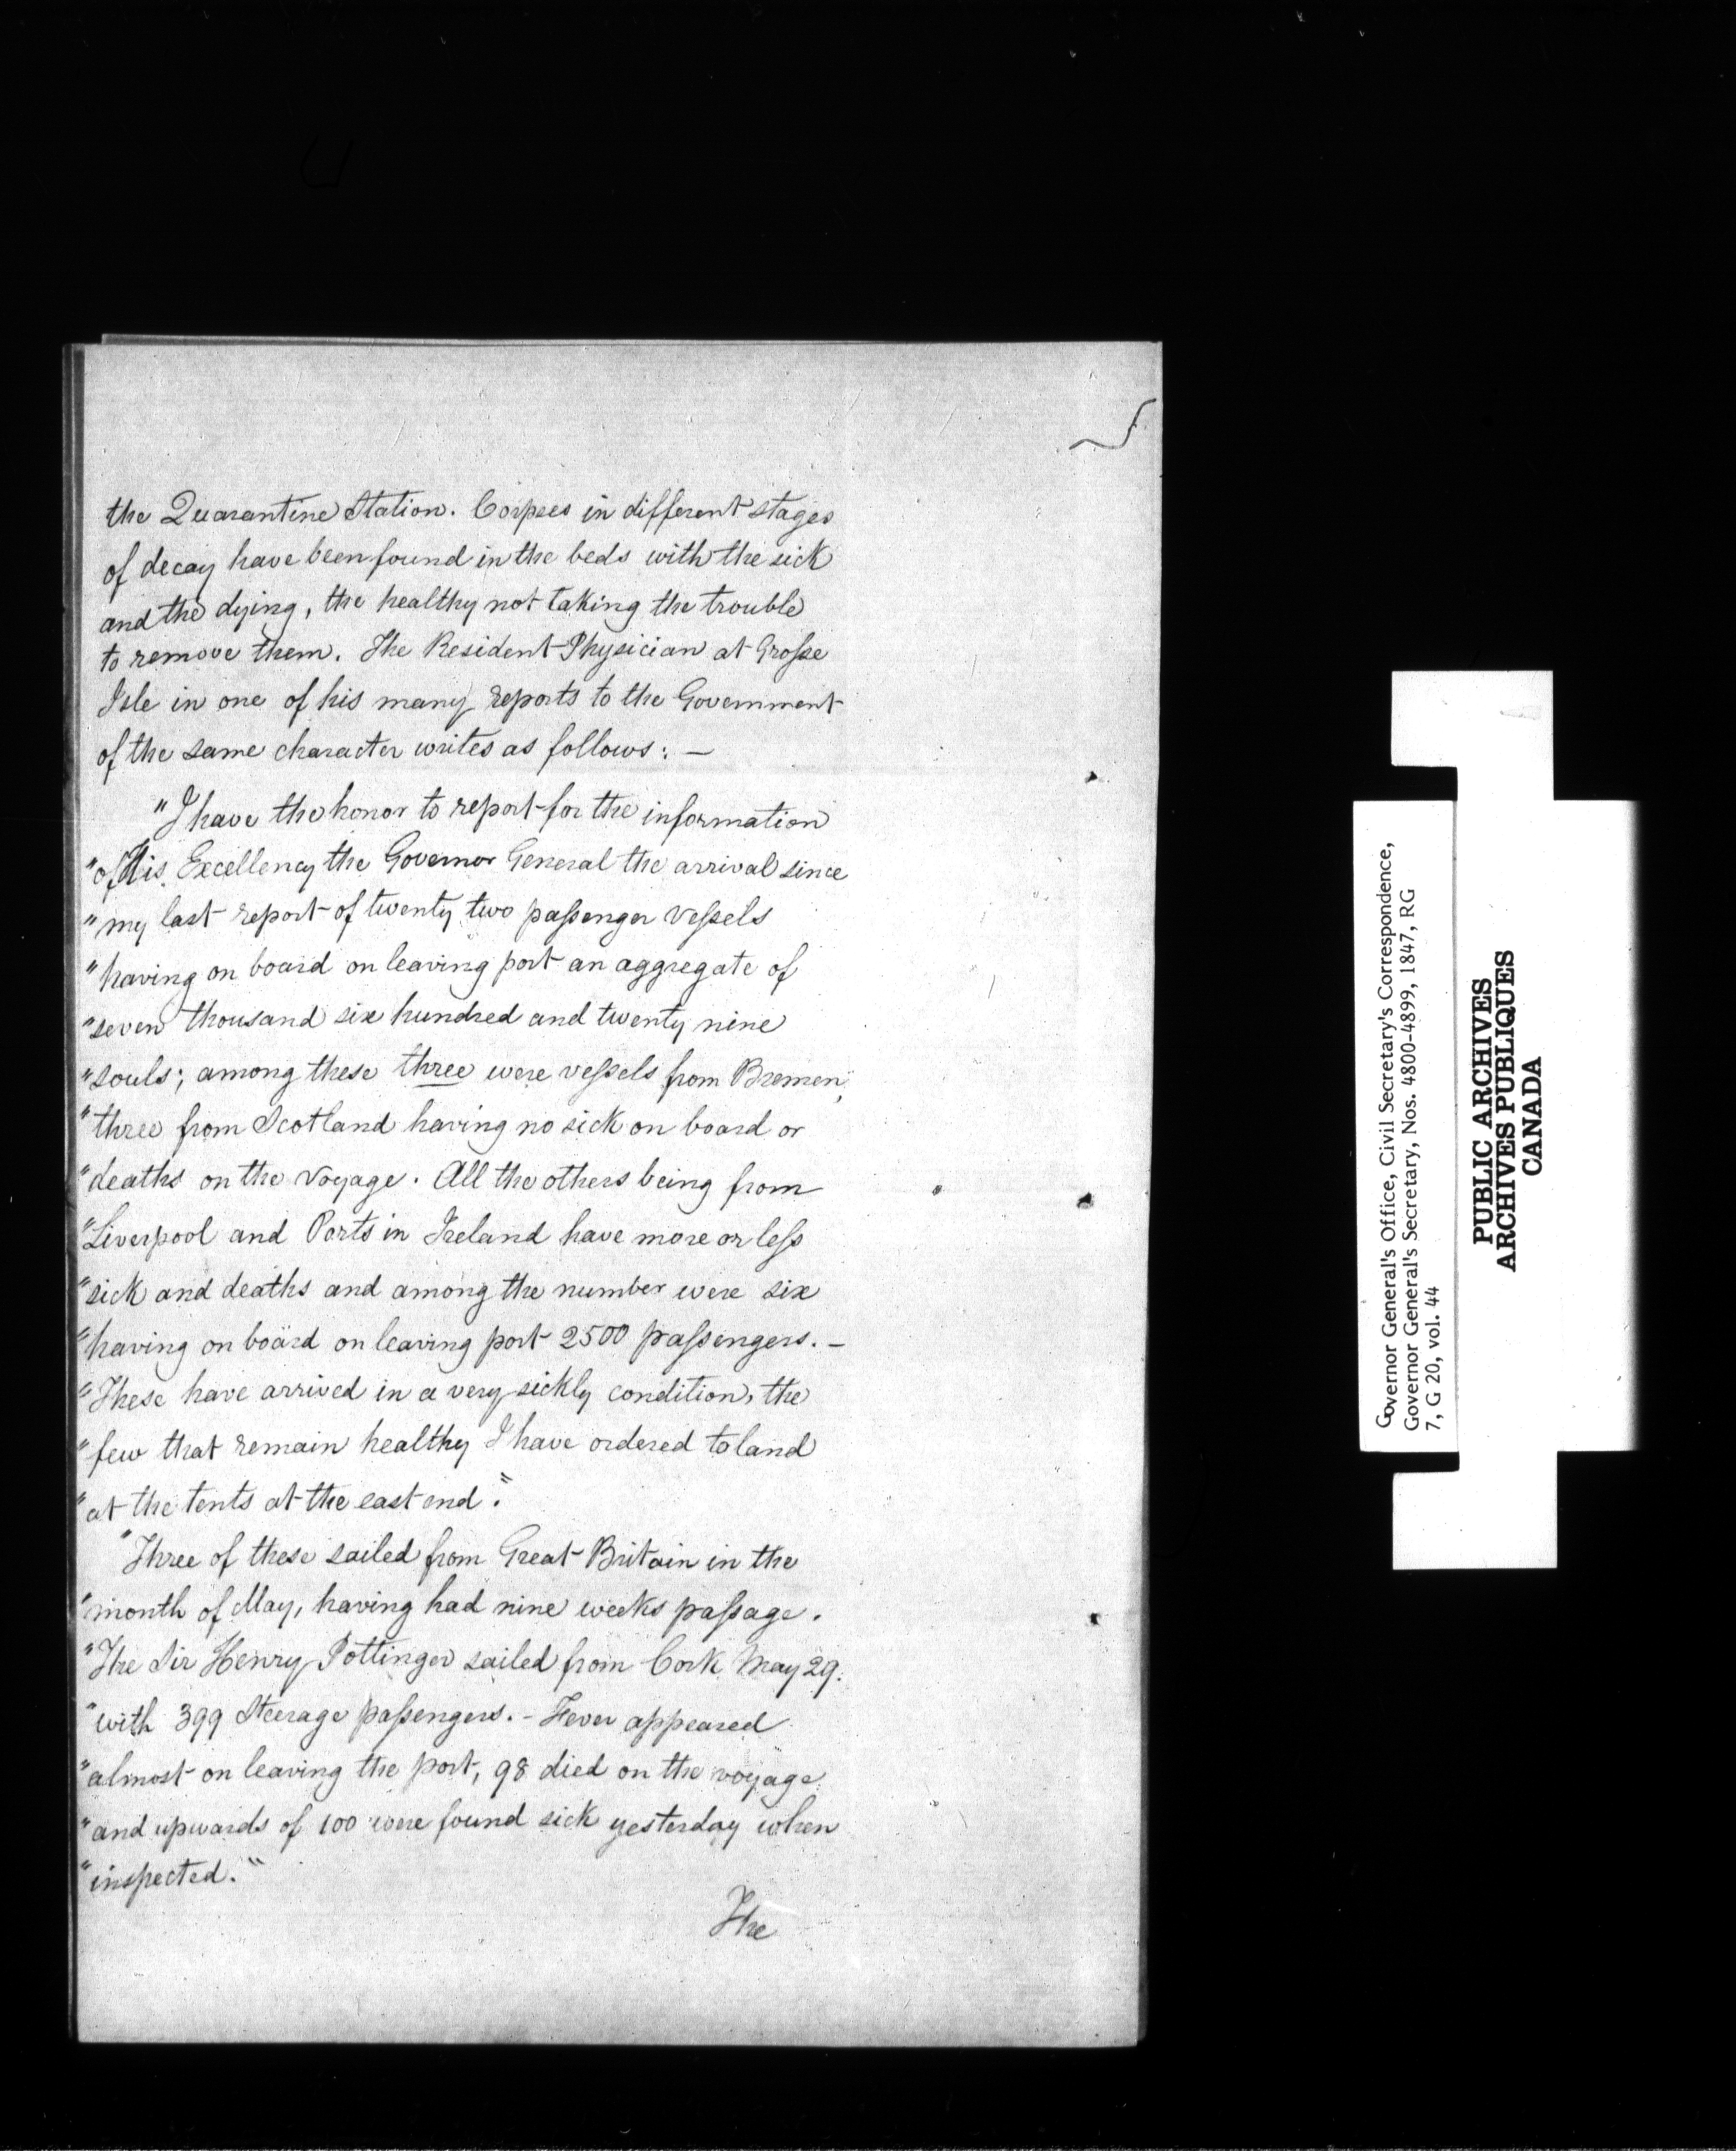 the Quarantine Station. Corpses in different stages
of decay have been found in the beds with the sick
and the dying, the healthy not taking the trouble
to remove them. The Resident Physician at Grosse
Isle in one of his many reports to the Government
of the same character writes as follows: —
"I have the honor to report for the information
"of His Excellency the Governor General the arrival since
"my last report of twenty two passenger vessels
"having on board on leaving port an aggregate of
"seven thousand six hundred and twenty nine
"souls; among these three were vessels from Bremen,
"three from Scotland having no sick on board or
"deaths on the voyage. All the others being from
"Liverpool and Ports in Ireland have more or less
"sick and deaths and among the number were six
"having on board on leaving port 2500 passengers. —
"These have arrived in a very sickly condition, the
"few that remain healthy I have ordered to land
"at the tents at the east end."
"Three of these sailed from Great Britain in the
"month of May, having had nine weeks passage.
"The Sir Henry Pottinger sailed from Cork May 29.
"with 399 Steerage passengers. - Fever appeared
"almost on leaving the port, 98 died on the voyage
"and upwards of 100 were found sick yesterday when
"inspected."
The
Governor General's Office, Civil Secretary's Correspondence,
Governor General's Secretary, Nos. 4800-4899, 1847, RG
7, G 20, vol. 44
PUBLIC ARCHIVES
ARCHIVES PUBLIQUES
CANADA